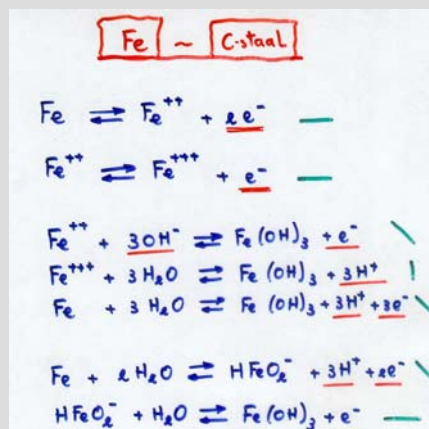 Fe ~ C-staal
Fe ⇌ Fe⁺⁺ + 2e⁻ —
Fe⁺⁺ ⇌ Fe⁺⁺⁺ + e⁻ —
Fe⁺⁺ + 3OH⁻ ⇌ Fe(OH)₃ + e⁻ \
Fe⁺⁺⁺ + 3H₂O ⇌ Fe(OH)₃ + 3H⁺ |
Fe + 3H₂O ⇌ Fe(OH)₃ + 3H⁺ + 3e⁻ \
Fe + 2H₂O ⇌ HFeO₂⁻ + 3H⁺ + 2e⁻ \
HFeO₂⁻ + H₂O ⇌ Fe(OH)₃ + e⁻ —